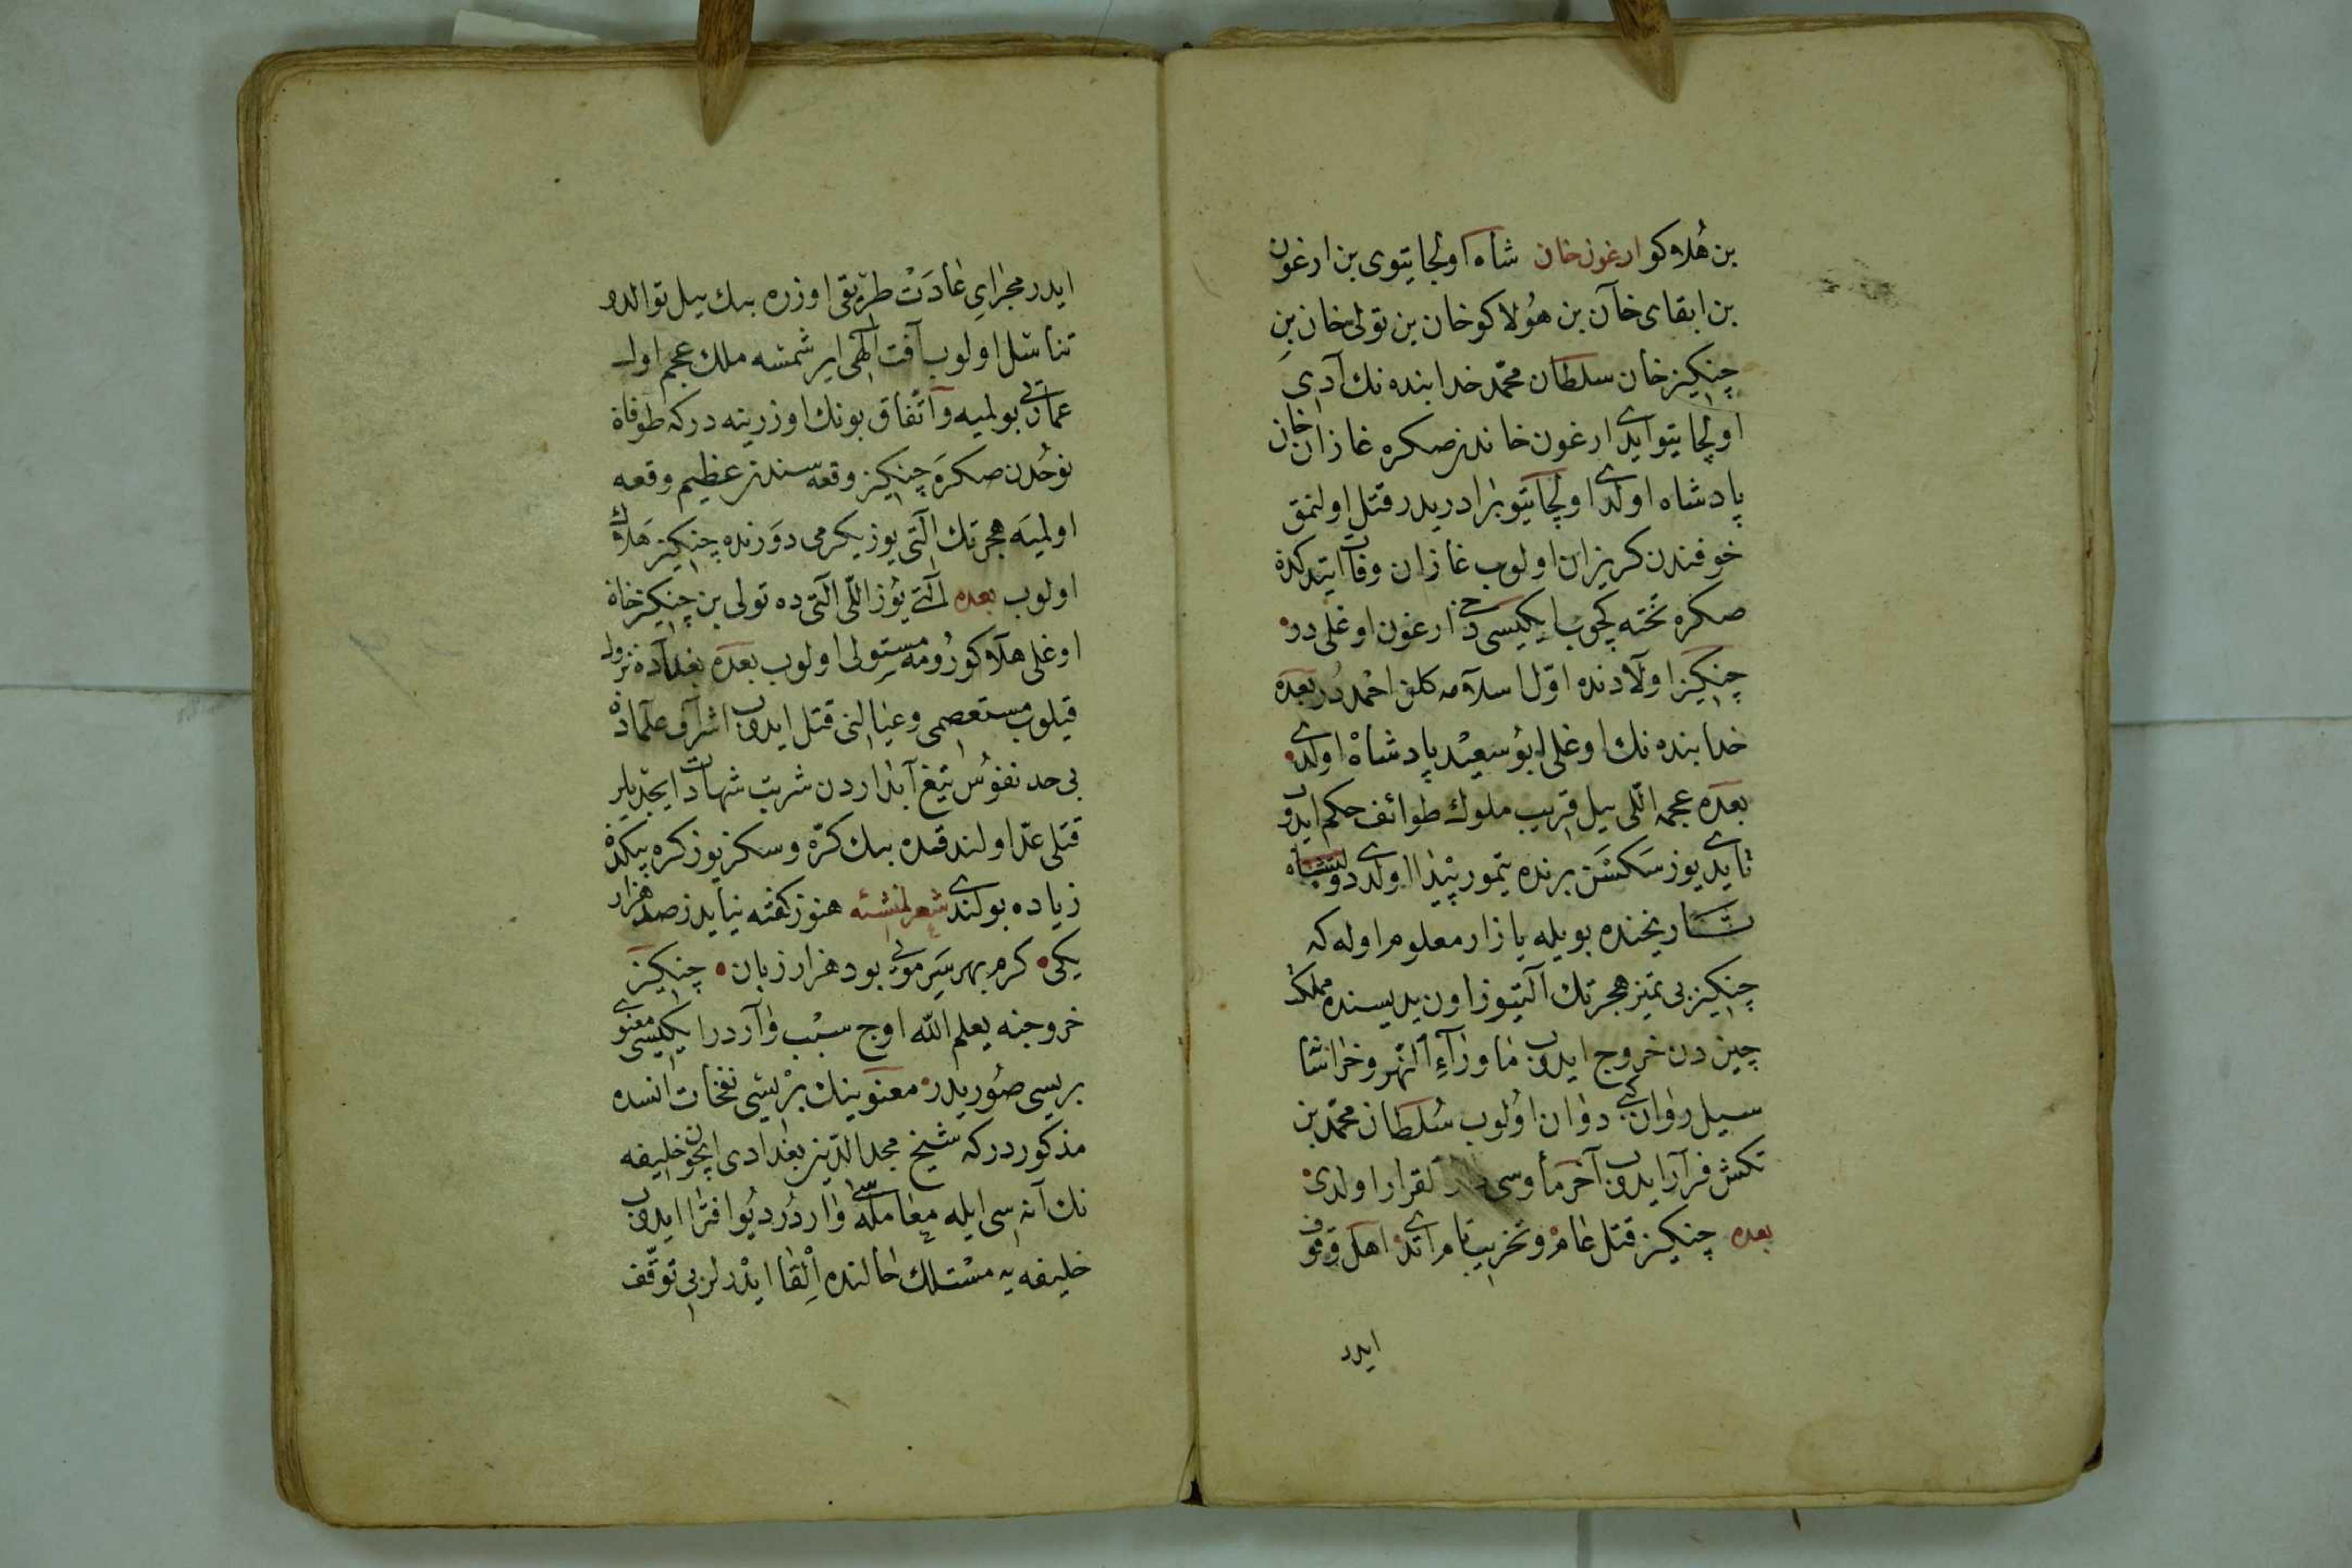 بن هلاكو ارغون خان شاه اولجايتوى بن ارغون
بن ابقاى خآن بن هولاكو خان بن تولى خان بن
چنكيز خان سلطان محمد خدابنده نك آدى
اولجايتو ايدى ارغون خاندن صكره غازان خان
پادشاه اولدى اولجايتو برادريدر قتل اولنمق
خوفندن كريزان اولوب غازان وفات ايتدكده
صكره تخته كچوب ايكيسى دخى ارغون اوغلى در
چنكيز اولادنده اول اسلامه كلن احمددر بعده
خدابنده نك اوغلى ابو سعيد پادشاه اولدى
بعده عجمه اللى ييل قريب ملوك طوائف حكم ايدوب
تا يدى يوز سكسن برنده تيمور پيدا اولدى
تاريخنده بويله يازار معلوم اوله كه
چنكيز بى تميز هجرتك آلتيوز اون يديسنده مملكت
چين دن خروج ايدوب ماوراء النهر و خراسانا
سيل روان كبى دوان اولوب سلطان محمد بن
تكش فرار ايدوب آخر مأوسى القرار اولدى
بعده چنكيز قتل عام و تخريب تام اتدى اهل وقوف
ايدر
ايدر مجراى عادت طريقى اوزره بيك ييل توالد و
تناسل اولوب آفت الهى ايرشمسه ملك عجم اول
عمارتى بولميه و اتفاق بونك اوزرينه دركه طوفان
نوحدن صكره چنكيز وقعه سندن عظيم وقعه
اولميه هجرتك التى يوز يكرمى دورنده چنكيز هلاك
اولوب بعده التى يوز اللى التى ده تولى بن چنكيز خان
اوغلى هلاكو رومه مستولى اولوب بعده بغداده نزول
قيلوب مستعصمى و عيالنى قتل ايدوب اشراف علمادن
بى حد نفوس تيغ آبداردن شربت شهادت ايچديلر
قتلى عد اولندقده بيك كره و سكز يوز كره بيكدن
زياده بولندى شعر لمنشئه هنوز كفته نيايد ز صد هزار
يكى كرم بهر سر مويى بود هزار زبان چنكيز
خروجنه يعلم الله اوج سبب واردر ايكيسى معنوى
بريسى صوريدر معنوينك بريسى نفحات انسده
مذكوردركه شيخ مجد الدين بغدادى ايچون خليفه
نك آنه سى ايله معامله سى واردر ديو افترا ايدوب
خليفه يه مستلك حالنده القا ايدرلر بى توقف